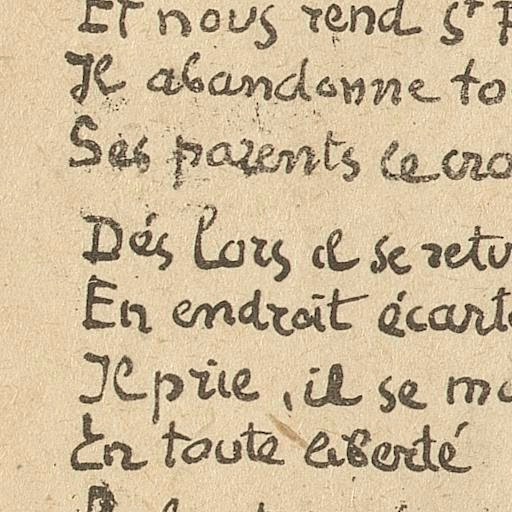 Et nous rend St
Il abandonne to
Ses parents le cro
Dés lors il se retu
En endroit écarté
Il prie, il se mo
En toute liberté